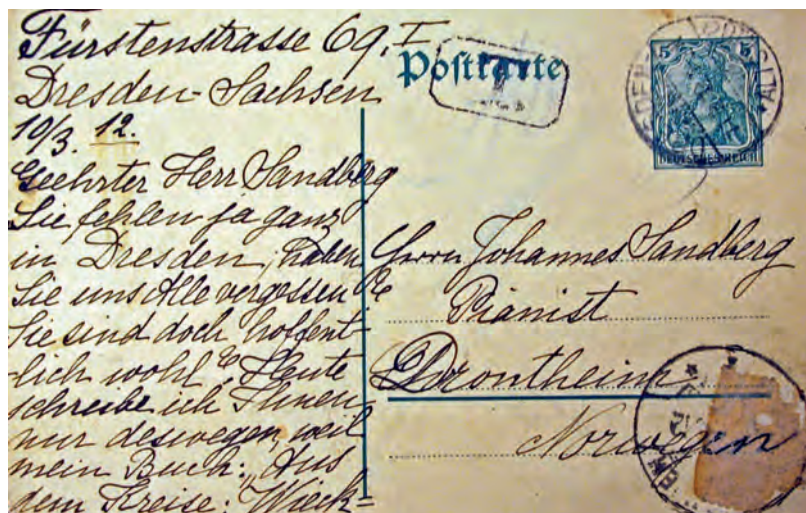 Fürstenstrasse 69, I
Dresden-Sachsen
10/3. 12.
Geehrter Herr Sandberg
Sie fehlen ja ganz
in Dresden, haben
Sie uns Alle vergessen?
Sie sind doch hoffent-
lich wohl? Heute
schreibe ich Ihnen
nur deswegen, weil
mein Buch: Aus
dem Kreise: Wieck=
Postkarte
5 5
DEUTSCHES REICH
Herrn Johannes Sandberg
Pianist
Drontheim
Norwegen